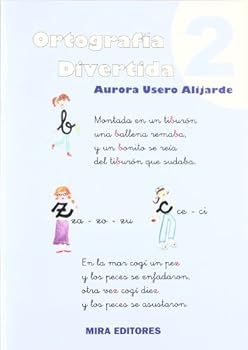 Ortografía
Divertida
2
Aurora Usero Alijarde
b
Montada en un tiburón
una ballena remaba,
y un bonito se reía
del tiburón que sudaba.
z
za - zo - zu
c
ce - ci
En la mar cogí un pez
y los peces se enfadaron,
otra vez cogí diez
y los peces se asustaron.
MIRA EDITORES